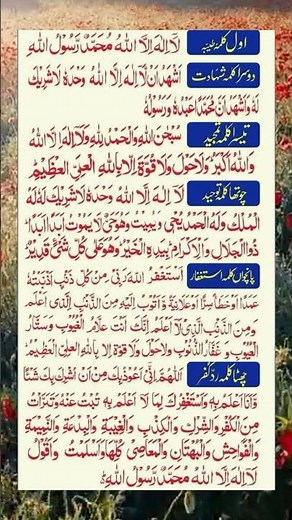 اول کلمہ طیّب لَا اِلٰهَ اِلَّا اللهُ مُحَمَّدٌ رَّسُوْلُ اللهِ
دوسرا کلمہ شہادت اَشْهَدُ اَنْ لَّا اِلٰهَ اِلَّا اللهُ وَحْدَهٗ لَا شَرِيْكَ
لَهٗ وَاَشْهَدُ اَنَّ مُحَمَّدًا عَبْدُهٗ وَرَسُوْلُهٗ
تیسرا کلمہ تمجید سُبْحٰنَ اللهِ وَالْحَمْدُ لِلّٰهِ وَلَا اِلٰهَ اِلَّا اللهُ
وَاللهُ اَكْبَرُ وَلَا حَوْلَ وَلَا قُوَّةَ اِلَّا بِاللهِ الْعَلِيِّ الْعَظِيْمِ
چوتھا کلمہ توحید لَا اِلٰهَ اِلَّا اللهُ وَحْدَهٗ لَا شَرِيْكَ لَهٗ لَهُ
الْمُلْكُ وَلَهُ الْحَمْدُ يُحْيٖ وَيُمِيْتُ وَهُوَ حَيٌّ لَّا يَمُوْتُ اَبَدًا اَبَدًا
ذُو الْجَلَالِ وَالْاِكْرَامِ بِيَدِهِ الْخَيْرُ وَهُوَ عَلٰى كُلِّ شَيْءٍ قَدِيْرٌ
پانچواں کلمہ استغفار اَسْتَغْفِرُ اللهَ رَبِّيْ مِنْ كُلِّ ذَنْۢبٍ اَذْنَبْتُهٗ
عَمَدًا اَوْ خَطَأً سِرًّا اَوْ عَلَانِيَةً وَّاَتُوْبُ اِلَيْهِ مِنَ الذَّنْۢبِ الَّذِيْ اَعْلَمُ
وَمِنَ الذَّنْۢبِ الَّذِيْ لَا اَعْلَمُ اِنَّكَ اَنْتَ عَلَّامُ الْغُيُوْبِ وَسَتَّارُ
الْعُيُوْبِ وَغَفَّارُ الذُّنُوْبِ وَلَا حَوْلَ وَلَا قُوَّةَ اِلَّا بِاللهِ الْعَلِيِّ الْعَظِيْمِ
چھٹا کلمہ ردّ کفر اَللّٰهُمَّ اِنِّيْ اَعُوْذُ بِكَ مِنْ اَنْ اُشْرِكَ بِكَ شَيْئًا
وَّاَنَا اَعْلَمُ بِهٖ وَاَسْتَغْفِرُكَ لِمَا لَا اَعْلَمُ بِهٖ تُبْتُ عَنْهُ وَتَبَرَّأْتُ
مِنَ الْكُفْرِ وَالشِّرْكِ وَالْكِذْبِ وَالْغِيْبَةِ وَالْبِدْعَةِ وَالنَّمِيْمَةِ
وَالْفَوَاحِشِ وَالْبُهْتَانِ وَالْمَعَاصِيْ كُلِّهَا وَاَسْلَمْتُ وَاَقُوْلُ
لَا اِلٰهَ اِلَّا اللهُ مُحَمَّدٌ رَّسُوْلُ اللهِ